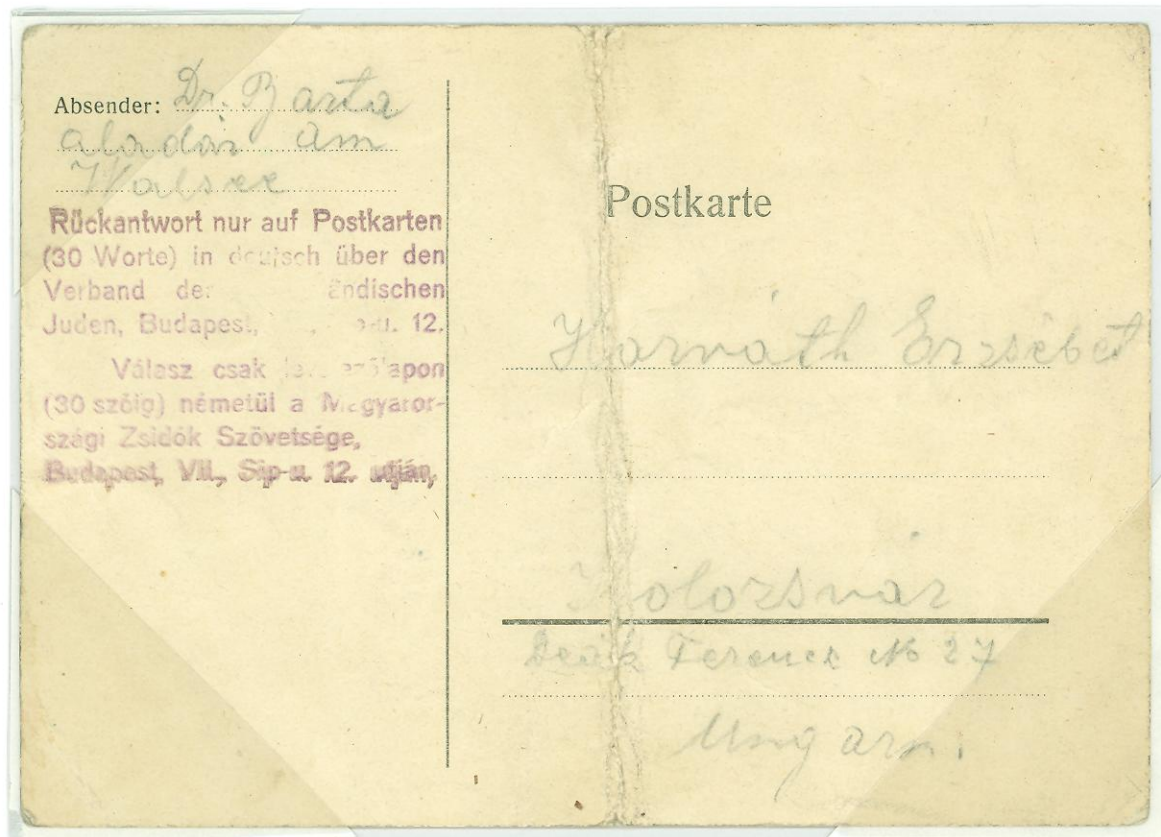 Absender: Dr. Barta
Aladár Am
Walsee
Rückantwort nur auf Postkarten
(30 Worte) in deutsch über den
Verband de ändischen
Juden, Budapest, u. 12.
Válasz csak apon
(30 szóig) németül a Magyaror-
szági Zsidók Szövetsége,
Budapest, VII., Sip-u. 12. utján,
Postkarte
Horváth Erzsébet
Kolozsvár
Deák Ferencz No 27
Ungarn.